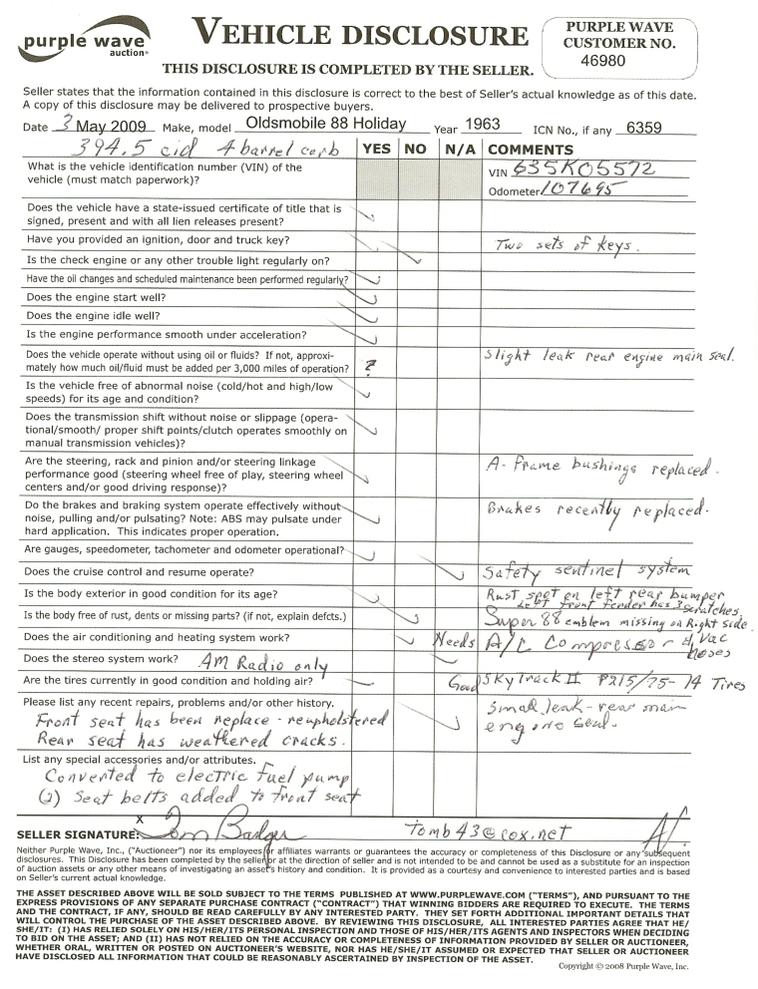 purple wave
auction
VEHICLE DISCLOSURE
THIS DISCLOSURE IS COMPLETED BY THE SELLER.
PURPLE WAVE
CUSTOMER NO.
46980
Seller states that the information contained in this disclosure is correct to the best of Seller's actual knowledge as of this date.
A copy of this disclosure may be delivered to prospective buyers.
Date 3 May 2009 Make, model Oldsmobile 88 Holiday Year 1963 ICN No., if any 6359
394.5 cid 4 barrel carb YES NO N/A COMMENTS
What is the vehicle identification number (VIN) of the
vehicle (must match paperwork)?
VIN 635K05572
Odometer 107695
Does the vehicle have a state-issued certificate of title that is
signed, present and with all lien releases present?
Have you provided an ignition, door and truck key? Two sets of keys.
Is the check engine or any other trouble light regularly on?
Have the oil changes and scheduled maintenance been performed regularly?
Does the engine start well?
Does the engine idle well?
Is the engine performance smooth under acceleration?
Does the vehicle operate without using oil or fluids? If not, approxi-
mately how much oil/fluid must be added per 3,000 miles of operation? ?
Slight leak rear engine main seal.
Is the vehicle free of abnormal noise (cold/hot and high/low
speeds) for its age and condition?
Does the transmission shift without noise or slippage (opera-
tional/smooth/ proper shift points/clutch operates smoothly on
manual transmission vehicles)?
Are the steering, rack and pinion and/or steering linkage
performance good (steering wheel free of play, steering wheel
centers and/or good driving response)?
A-Frame bushings replaced.
Do the brakes and braking system operate effectively without
noise, pulling and/or pulsating? Note: ABS may pulsate under
hard application. This indicates proper operation.
Brakes recently replaced.
Are gauges, speedometer, tachometer and odometer operational?
Does the cruise control and resume operate? Safety sentinel system
Is the body exterior in good condition for its age? Rust spot on left rear bumper
Left front fender has 3 scratches.
Is the body free of rust, dents or missing parts? (if not, explain defcts.) Super 88 emblem missing on Right side
Does the air conditioning and heating system work? Needs A/C Compressor & Vac
hoses
Does the stereo system work? AM Radio only
Are the tires currently in good condition and holding air? Good SkyTrack II P215/75-14 Tires
Please list any recent repairs, problems and/or other history.
Front seat has been replace - reupholstered
Rear seat has weathered cracks.
Small leak - rear main
engine seal.
List any special accessories and/or attributes.
Converted to electric fuel pump
(2) Seat belts added to front seat
SELLER SIGNATURE: x Tom Badger tomb43@cox.net
Neither Purple Wave, Inc., ("Auctioneer") nor its employees or affiliates warrants or guarantees the accuracy or completeness of this Disclosure or any subsequent
disclosures. This Disclosure has been completed by the seller or at the direction of seller and is not intended to be and cannot be used as a substitute for an inspection
of auction assets or any other means of investigating an asset's history and condition. It is provided as a courtesy and convenience to interested parties and is based
on Seller's current actual knowledge.
THE ASSET DESCRIBED ABOVE WILL BE SOLD SUBJECT TO THE TERMS PUBLISHED AT WWW.PURPLEWAVE.COM ("TERMS"), AND PURSUANT TO THE
EXPRESS PROVISIONS OF ANY SEPARATE PURCHASE CONTRACT ("CONTRACT") THAT WINNING BIDDERS ARE REQUIRED TO EXECUTE. THE TERMS
AND THE CONTRACT, IF ANY, SHOULD BE READ CAREFULLY BY ANY INTERESTED PARTY. THEY SET FORTH ADDITIONAL IMPORTANT DETAILS THAT
WILL CONTROL THE PURCHASE OF THE ASSET DESCRIBED ABOVE. BY REVIEWING THIS DISCLOSURE, ALL INTERESTED PARTIES AGREE HE/
SHE/IT: (I) HAS RELIED SOLELY ON HIS/HER/ITS PERSONAL INSPECTION AND THOSE OF HIS/HER/ITS AGENTS AND INSPECTORS WHEN DECIDING
TO BID ON THE ASSET; AND (II) HAS NOT RELIED ON THE ACCURACY OR COMPLETENESS OF INFORMATION PROVIDED BY SELLER OR AUCTIONEER,
WHETHER ORAL, WRITTEN OR POSTED ON AUCTIONEER'S WEBSITE, NOR HAS HE/SHE/IT ASSUMED OR EXPECTED THAT SELLER OR AUCTIONEER
HAVE DISCLOSED ALL INFORMATION THAT COULD BE REASONABLY ASCERTAINED BY INSPECTION OF THE ASSET.
Copyright © 2008 Purple Wave, Inc.